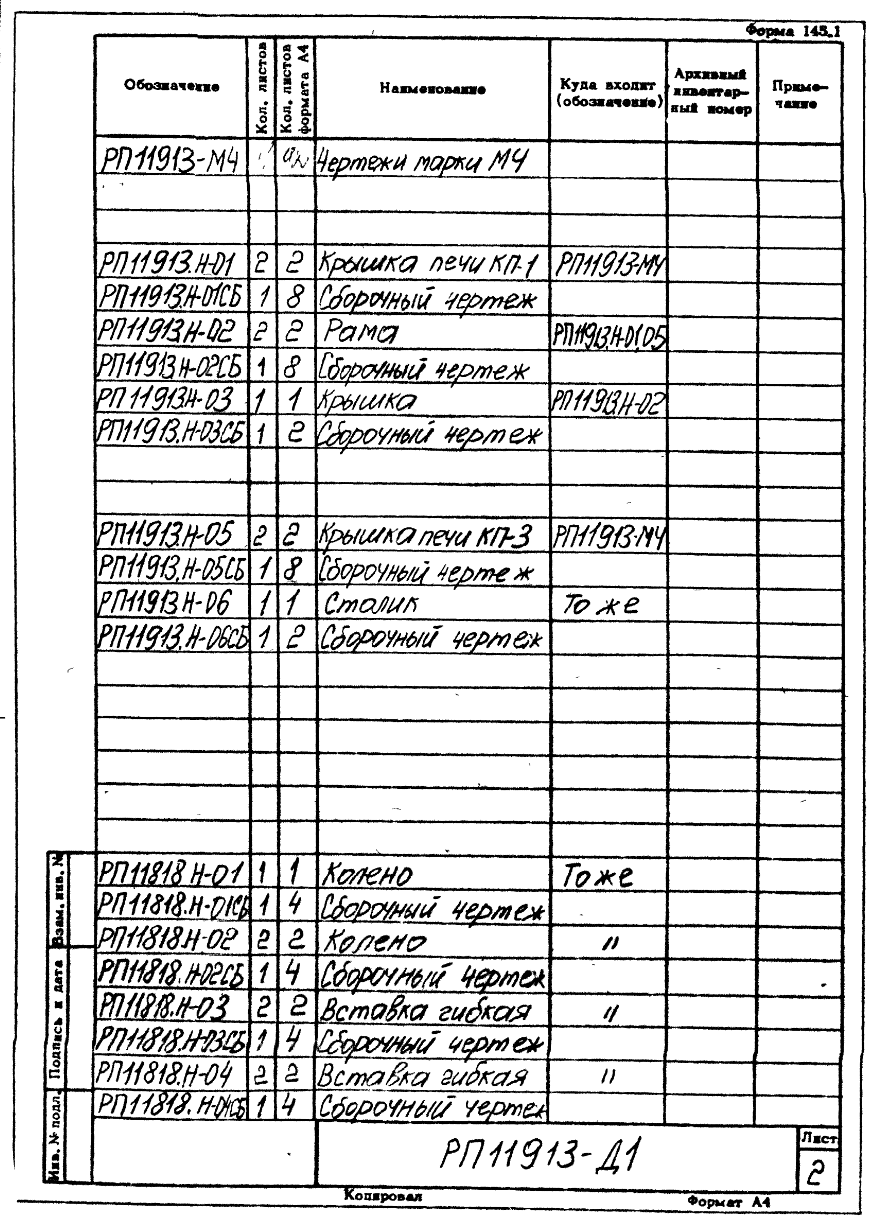 Форма 145.1
Обозначение Кол. листов Кол. листов формата А4 Наименование Куда входит (обозначение) Архивный инвентарный номер Примечание
РП11913-МЧ Чертежи марки МЧ
РП11913.Н-01 2 2 Крышка печи КП-1 РП11913-МЧ
РП11913.Н-01СБ 1 8 Сборочный чертеж
РП11913.Н-02 2 2 Рама РП11913.Н-01,05
РП11913.Н-02СБ 1 8 Сборочный чертеж
РП11913.Н-03 1 1 Крышка РП11913.Н-02
РП11913.Н-03СБ 1 2 Сборочный чертеж
РП11913.Н-05 2 2 Крышка печи КП-3 РП11913-МЧ
РП11913.Н-05СБ 1 8 Сборочный чертеж
РП11913.Н-06 1 1 Столик То же
РП11913.Н-06СБ 1 2 Сборочный чертеж
РП11818.Н-01 1 1 Колено То же
РП11818.Н-01СБ 1 4 Сборочный чертеж
РП11818.Н-02 2 2 Колено "
РП11818.Н-02СБ 1 4 Сборочный чертеж
РП11818.Н-03 2 2 Вставка гибкая "
РП11818.Н-03СБ 1 4 Сборочный чертеж
РП11818.Н-04 2 2 Вставка гибкая "
РП11818.Н-04СБ 1 4 Сборочный чертеж
Взам. инв. №
Подпись и дата
Инв. № подл.
РП11913-Д1
Лист
2
Копировал Формат А4